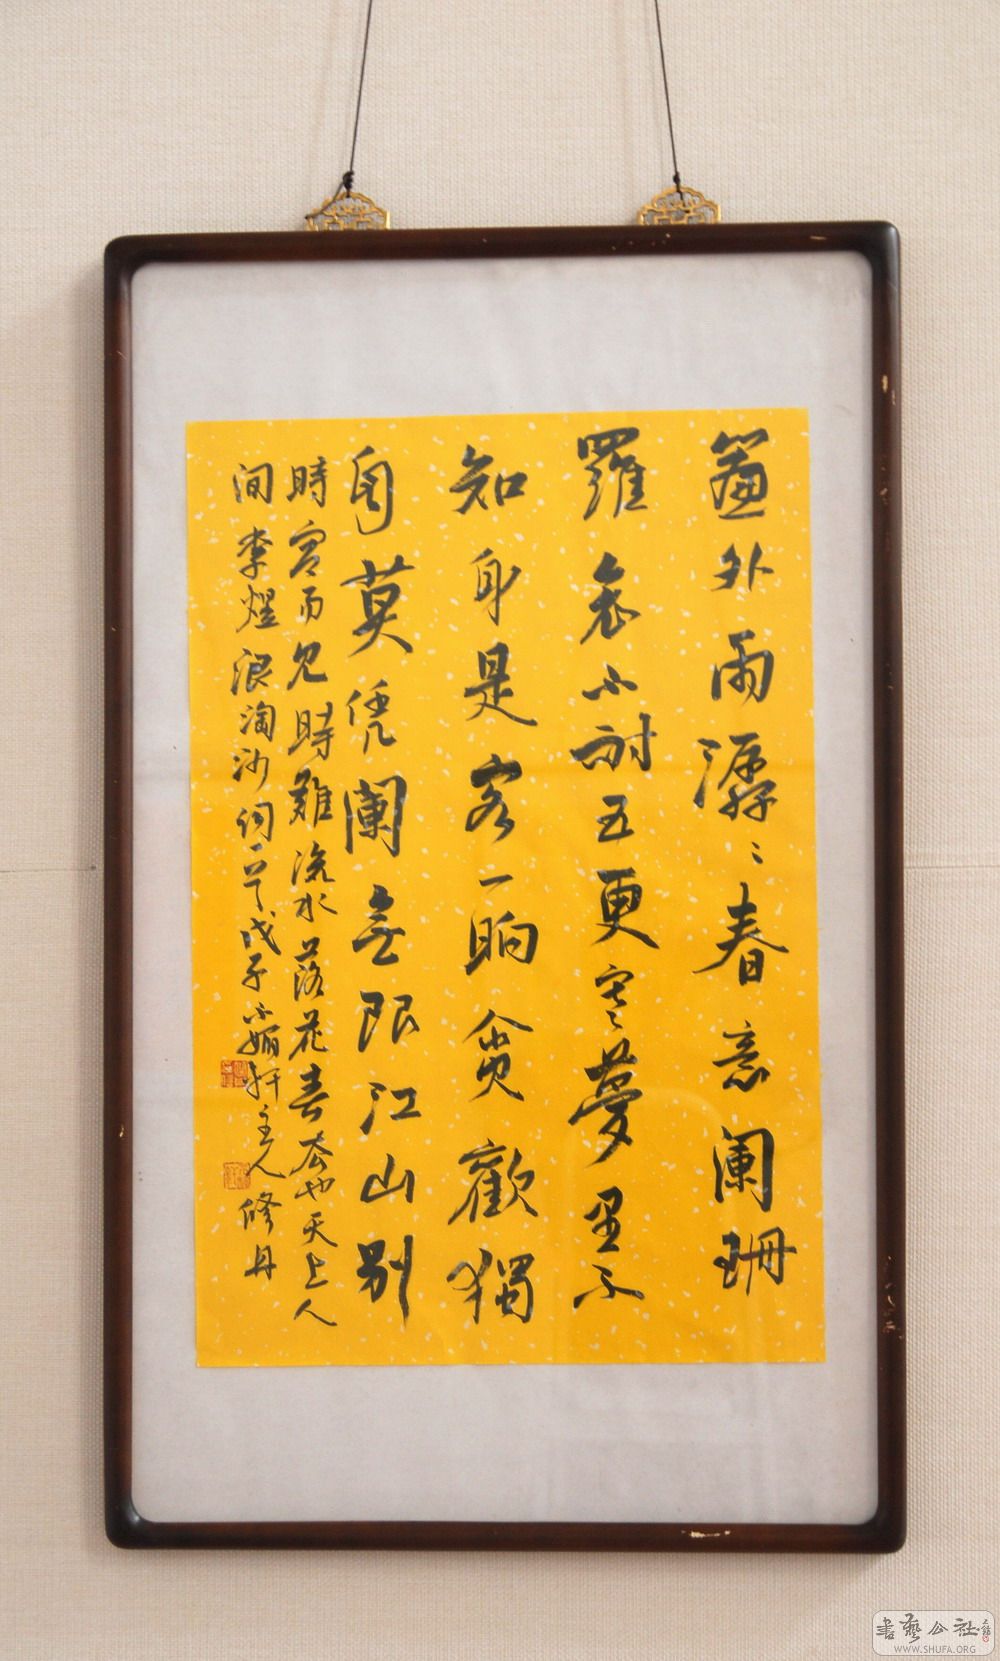 簾外雨潺〻春意闌珊
羅衾不耐五更寒夢里不
知身是客一晌貪歡獨
自莫凭闌無限江山別
時容易見時難流水落花春去也天上人
间李煜浪淘沙词一首戊子小媚軒主人修丹
書藝公社
WWW.SHUFA.ORG